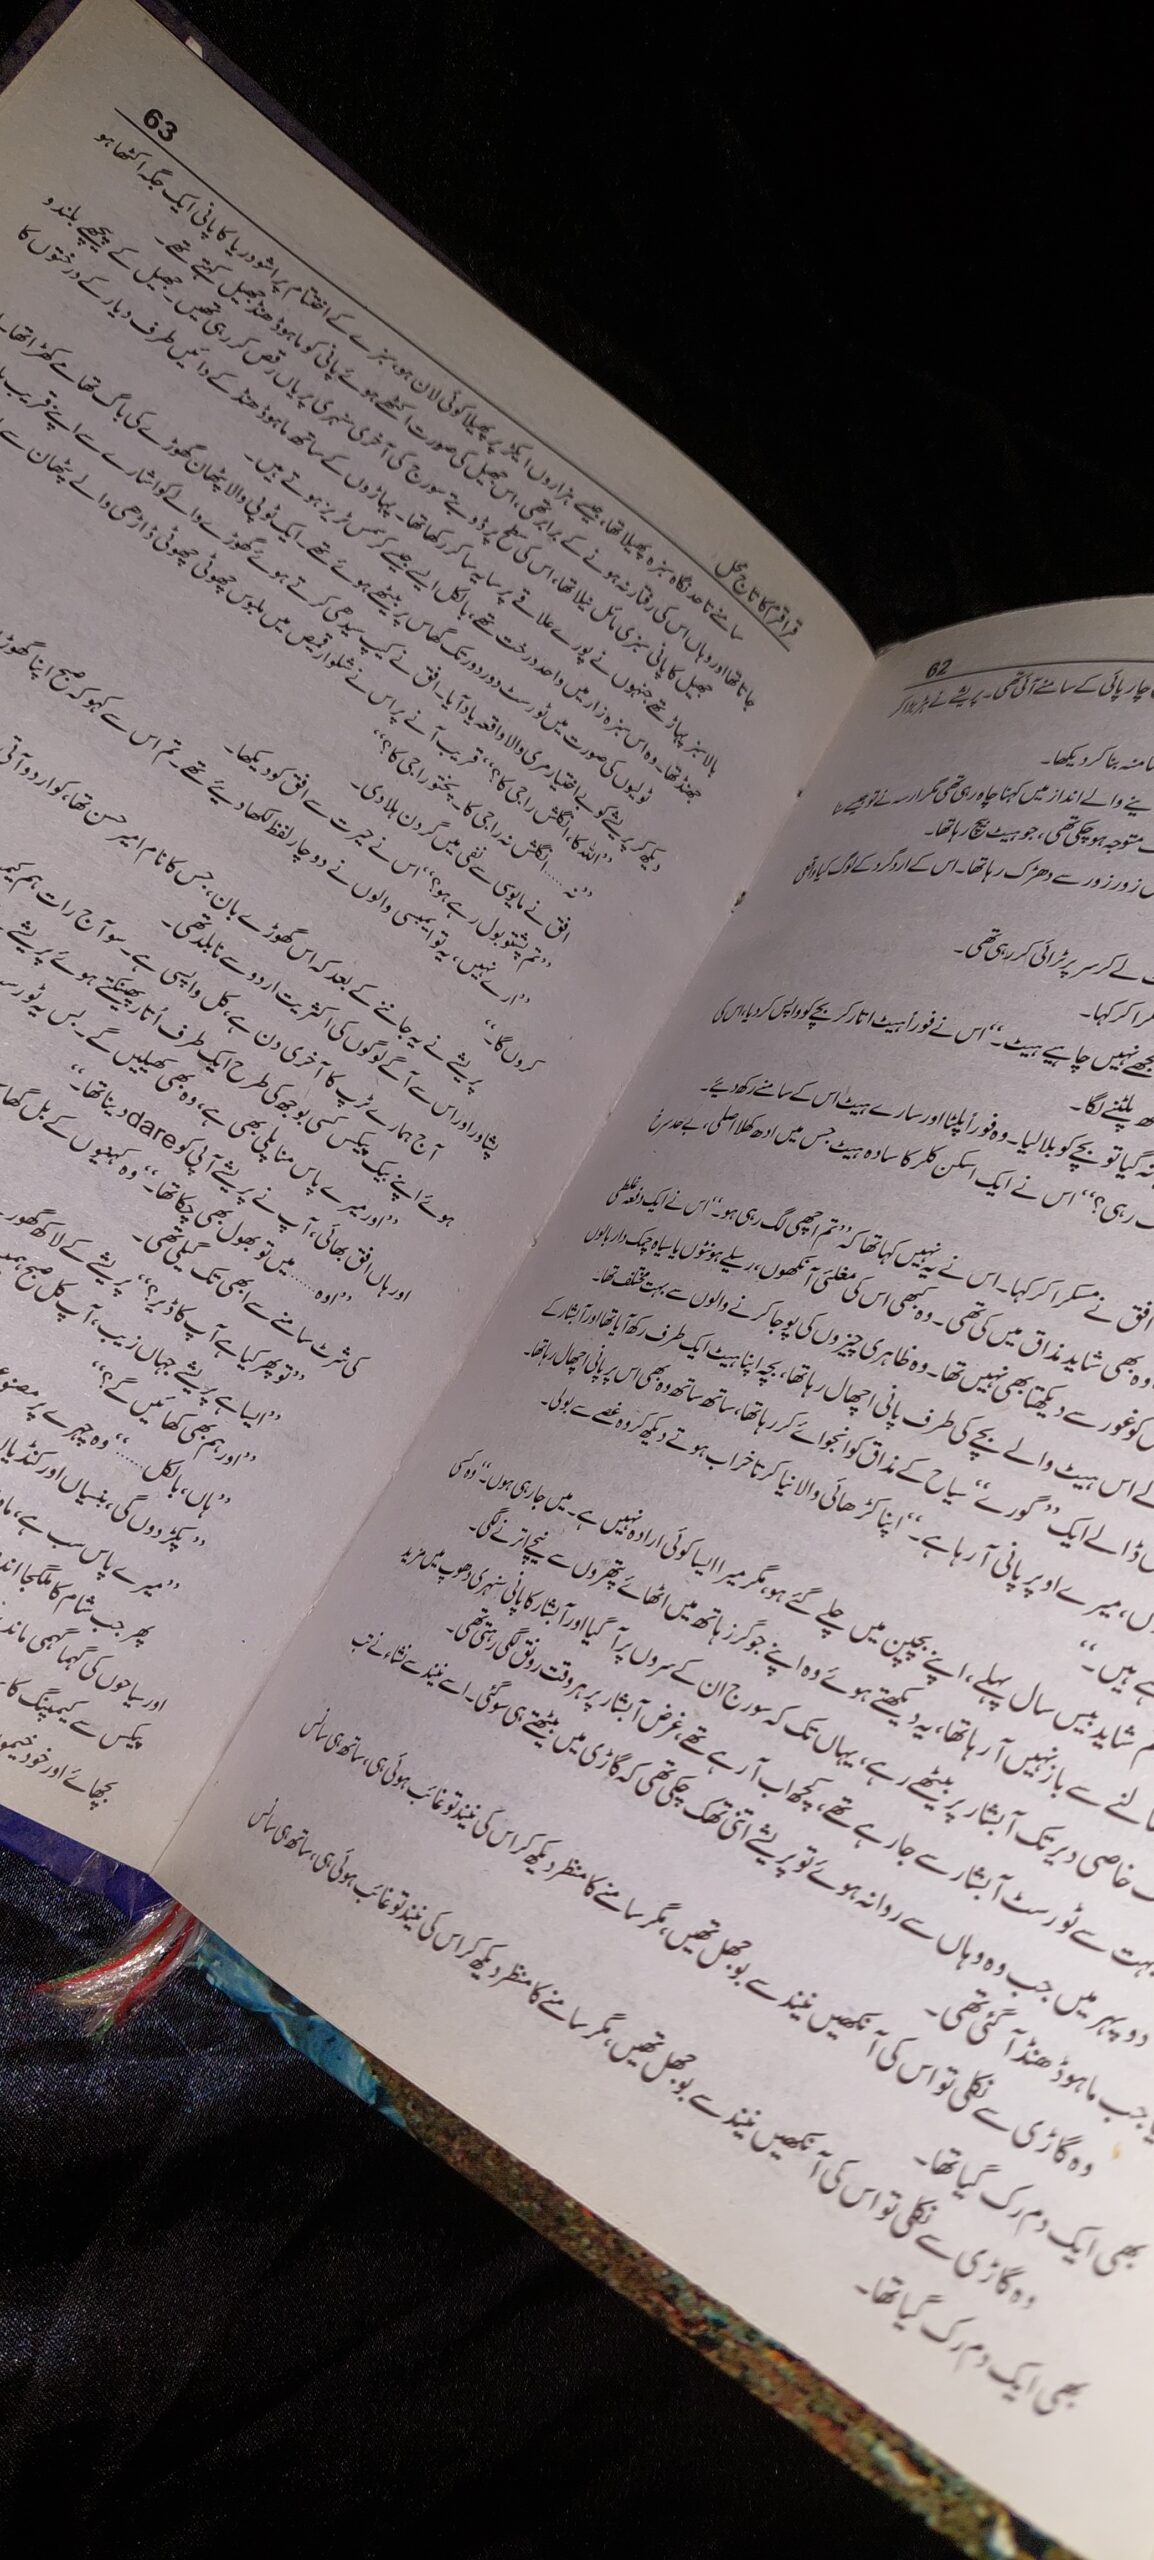 62
چارپائی کے سامنے آئی تھی۔ پریشے نے ہڑبڑا کر
منہ بنا کر دیکھا۔
والے انداز میں کہنا چاہ رہی تھی مگر ارسہ نے تو جیسے سنا
متوجہ ہو چکی تھی، جو ہیٹ بیچ رہا تھا۔
زور زور سے دھڑک رہا تھا۔ اس کے اردگرد کے لوگ کیا واقعی
لے کر سر پر ٹرائی کر رہی تھی۔
کر کہا۔
نہیں چاہیے ہیٹ۔“ اس نے فوراً ہیٹ اتار کر بچے کو واپس کر دیا، اس کی
پلٹنے لگا۔
گیا تو بچے کو بلا لیا۔ وہ فوراً پلٹا اور سارے ہیٹ اس کے سامنے رکھ دیے۔
رہی؟“ اس نے ایک اسکن کلر کا سادہ ہیٹ جس میں ادھ کھلا اصلی، بے حد سرخ
افق نے مسکرا کر کہا۔ اس نے یہ نہیں کہا تھا کہ ”تم اچھی لگ رہی ہو۔“ اس نے ایک دفعہ غلطی
وہ بھی شاید مذاق میں کی تھی۔ وہ کبھی اس کی مغلئی آنکھوں، رسیلے ہونٹوں یا سیاہ چمک دار بالوں
کو غور سے دیکھتا بھی نہیں تھا۔ وہ ظاہری چیزوں کی پوجا کرنے والوں سے بہت مختلف تھا۔
اس ہیٹ والے بچے کی طرف پانی اچھال رہا تھا، بچہ اپنا ہیٹ ایک طرف رکھ آیا تھا اور آبشار کے
ڈالے ایک ”گورے“ سیاح کے مذاق کو انجوائے کر رہا تھا، ساتھ ساتھ وہ بھی اس پر پانی اچھال رہا تھا۔
میرے اوپر پانی آ رہا ہے۔“ اپنا کڑھائی والا نیا کرتا خراب ہوتے دیکھ کر وہ غصے سے بولی۔
ہیں۔“
شاید بیس سال پہلے، اپنے بچپن میں چلے گئے ہو، مگر میرا ایسا کوئی ارادہ نہیں ہے۔ میں جا رہی ہوں۔“ وہ کسی
سے باز نہیں آ رہا تھا، یہ دیکھتے ہوئے وہ اپنے جوگرز ہاتھ میں اٹھائے پتھروں سے نیچے اترنے لگی۔
خاصی دیر تک آبشار پر بیٹھے رہے، یہاں تک کہ سورج ان کے سروں پر آ گیا اور آبشار کا پانی سنہری دھوپ میں مزید
بہت سے ٹورسٹ آبشار سے جا رہے تھے، کچھ اب آ رہے تھے، غرض آبشار پر ہر وقت رونق لگی رہتی تھی۔
دوپہر میں جب وہ وہاں سے روانہ ہوئے تو پریشے اتنی تھک چکی تھی کہ گاڑی میں بیٹھتے ہی سو گئی۔ اسے نیند سے نشاء نے تب
جب ماہوڈھنڈ آ گئی تھی۔
وہ گاڑی سے نکلی تو اس کی آنکھیں نیند سے بوجھل تھیں، مگر سامنے کا منظر دیکھ کر اس کی نیند تو غائب ہوئی ہی، ساتھ ہی سانس
بھی ایک دم رک گیا تھا۔
وہ گاڑی سے نکلی تو اس کی آنکھیں نیند سے بوجھل تھیں، مگر سامنے کا منظر دیکھ کر اس کی نیند تو غائب ہوئی ہی، ساتھ ہی سانس
بھی ایک دم رک گیا تھا۔
قراقرم کا تاج محل 63
سامنے تا حد نگاہ سبزہ پھیلا تھا، جیسے ہزاروں ایکڑ پر پھیلا کوئی لان ہو، سبزے کے اختتام پر اشو دریا کا پانی ایک جگہ اکٹھا ہو
جاتا تھا اور وہاں اس کی رفتار نہ ہونے کے برابر تھی، اس جھیل کی صورت اکٹھے ہوئے پانی کو ماہوڈھنڈ جھیل کہتے تھے۔
جھیل کا پانی سبزی مائل نیلا تھا، اس کی سطح پر ڈوبتے سورج کی آخری سنہری پریاں رقص کر رہی تھیں۔ جھیل کے پیچھے بلند و
بالا سبز پہاڑ تھے جنہوں نے پورے علاقے پر سایہ سا کر رکھا تھا۔ پہاڑوں کے ساتھ ماہوڈھنڈ کے دائیں طرف دیار کے درختوں کا
جھنڈ تھا۔ وہ اس سبزہ زار میں واحد درخت تھے، بالکل ایسے جیسے کرسمس ٹریز ہوتے ہیں۔
ٹولیوں کی صورت میں ٹورسٹ دور دور تک گھاس پر بیٹھے ہوئے تھے۔ ایک ٹوپی والا پٹھان گھوڑے کی باگ تھامے کھڑا تھا۔
دیکھ کر پریشے کو بے اختیار مری والا واقعہ یاد آیا۔ افق نے کیپ سیدھی کرتے ہوئے گھوڑے والے کو اشارے سے اپنے قریب
”اللہ کا، انگلش راجی کا؟“ قریب آنے پر اس نے شلوار قمیص میں ملبوس چھوٹی چھوٹی ڈاڑھی والے پٹھان سے
”نہ..... انگلش نہ راجی کا۔ پختو راجی کا؟“
افق نے مایوسی سے نفی میں گردن ہلا دی۔
”تم پشتو بول رہے ہو؟“ اس نے حیرت سے افق کو دیکھا۔
”ارے نہیں، یہ تو ایمبیسی والوں نے دو چار لفظ لکھا دیے تھے۔ تم اس سے کہو کہ صبح اپنا گھوڑا
کروں گا۔“
پریشے نے یہ جاننے کے بعد کہ اس گھوڑے بان، جس کا نام امیر حسن تھا، کو اردو آتی
پشاور اور اس سے آگے لوگوں کی اکثریت اردو سے نابلد تھی۔
آج ہمارے ٹرپ کا آخری دن ہے، کل واپسی ہے۔ سو آج رات ہم
ہوئے اپنے بیک پیکس کسی بوجھ کی طرح ایک طرف اتار پھینکتے ہوئے پریشے
”اور میرے پاس مناپلی بھی ہے، وہ بھی کھیلیں گے۔ بس یہ ٹورسٹ
اور ہاں افق بھائی، آپ نے پریشے آپی کو dare دینا تھا۔“
”اوہ..... میں تو بھول بھی چکا تھا۔“ وہ کہنیوں کے بل گھاس
کی شرٹ سامنے سے ابھی تک گیلی تھی۔
”تو پھر کیا ہے آپ کا ڈیر؟“ پریشے کے لاکھ گھورنے
”ایسا ہے پریشے جہاں زیب، آپ کل صبح ہمیں
”اور ہم بھی کھائیں گے؟“
”ہاں، بالکل.....“ وہ چہرے پر مصنوعی
”پکڑ دوں گی، بنسیاں اور کنڈیاں
”میرے پاس سب ہے، مادام
پھر جب شام کا ملگجا اندھیرا
اور سیاحوں کی گہما گہمی ماند
پیکس سے کیمپنگ کا
بچھائے اور خود خیموں